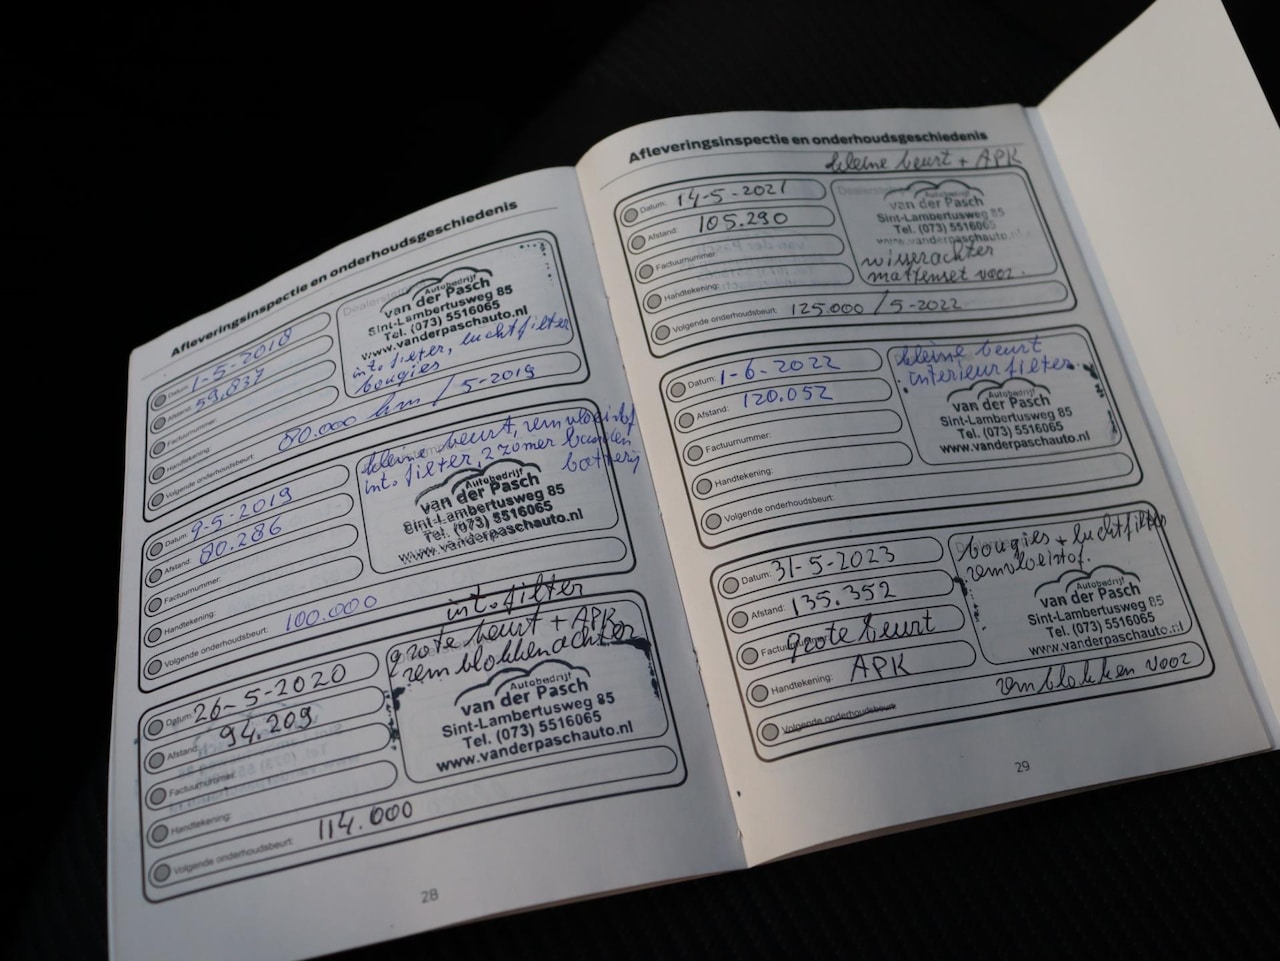 Afleveringsinspectie en onderhoudsgeschiedenis
Datum: 1-5-2018
Afstand: 59.837
Factuurnummer:
Handtekening:
Volgende onderhoudsbeurt: 80.000 km / 5-2019
Autobedrijf
van der Pasch
Sint-Lambertusweg 85
Tel. (073) 5516065
www.vanderpaschauto.nl
int. filter, luchtfilter
bougies
Datum: 9-5-2019
Afstand: 80.286
Factuurnummer:
Handtekening:
Volgende onderhoudsbeurt: 100.000
kleine beurt, remvloeistof
int. filter, 2 zomer banden
batterij
Autobedrijf
van der Pasch
Sint-Lambertusweg 85
Tel. (073) 5516065
www.vanderpaschauto.nl
Datum: 26-5-2020
Afstand: 94.209
Factuurnummer:
Handtekening:
Volgende onderhoudsbeurt: 114.000
int. filter
grote beurt + APK
remblokken achter
Autobedrijf
van der Pasch
Sint-Lambertusweg 85
Tel. (073) 5516065
www.vanderpaschauto.nl
28
Afleveringsinspectie en onderhoudsgeschiedenis
kleine beurt + APK
Datum: 14-5-2021
Afstand: 105.290
Factuurnummer:
Handtekening:
Volgende onderhoudsbeurt: 125.000 / 5-2022
Autobedrijf
van der Pasch
Sint-Lambertusweg 85
Tel. (073) 5516065
www.vanderpaschauto.nl
wisserachter
mattenset voor.
Datum: 1-6-2022
Afstand: 120.052
Factuurnummer:
Handtekening:
Volgende onderhoudsbeurt:
kleine beurt
interieurfilter
Autobedrijf
van der Pasch
Sint-Lambertusweg 85
Tel. (073) 5516065
www.vanderpaschauto.nl
Datum: 31-5-2023
Afstand: 135.352
Factuurnummer: grote beurt
Handtekening: APK
Volgende onderhoudsbeurt
bougies + luchtfilter
remvloeistof.
Autobedrijf
van der Pasch
Sint-Lambertusweg 85
Tel. (073) 5516065
www.vanderpaschauto.nl
remblokken voor
29